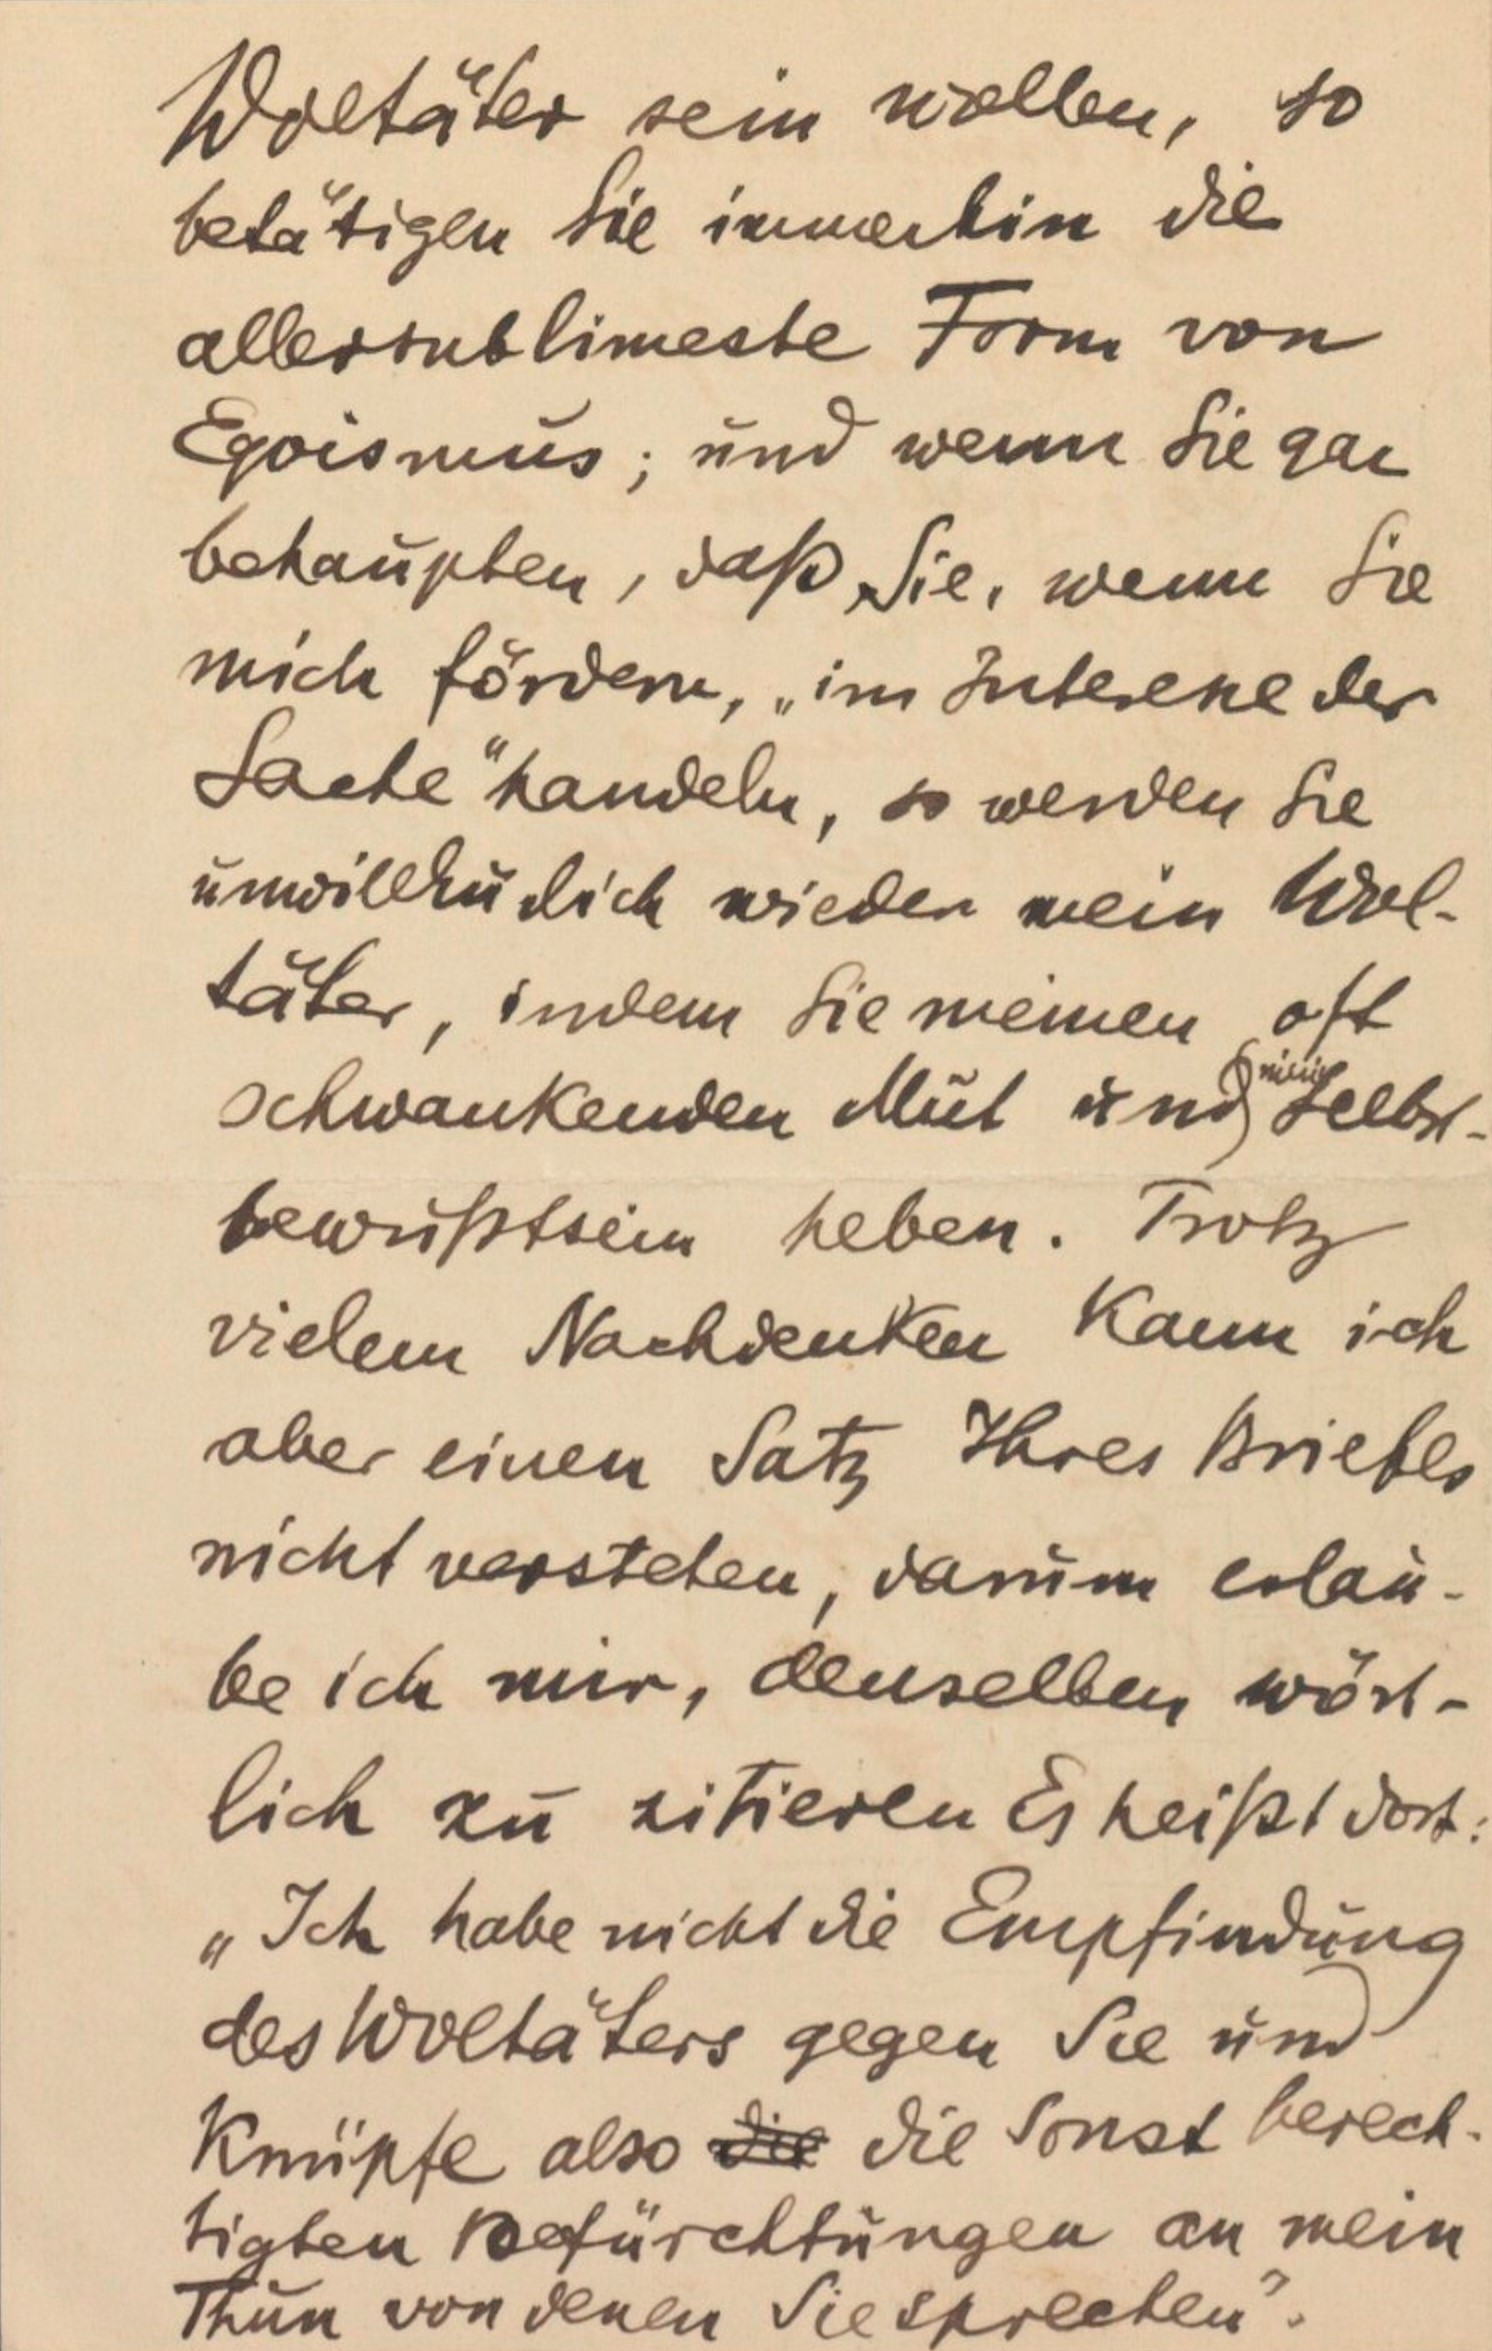 Woltäter sein wollen, so
betätigen Sie immerhin die
allersublimeste Form von
Egoismus; und wenn Sie gar
behaupten, daß Sie, wenn Sie
mich fördern, „im Interesse der
Sache" handeln, so werden Sie
unwillkürlich wieder mein Wol-
täter, indem Sie meinen oft
schwankenden Mut und mein Selbst-
bewußtsein heben. Trotz
vielem Nachdenken kann ich
aber einen Satz Ihres Briefes
nicht verstehen, darum erlau-
be ich mir, denselben wört-
lich zu zitieren Es heißt dort:
„Ich habe nicht die Empfindung
des Woltäters gegen Sie und
knüpfe also die die sonst berech-
tigten Befürchtungen an mein
Thun von denen Sie sprechen".